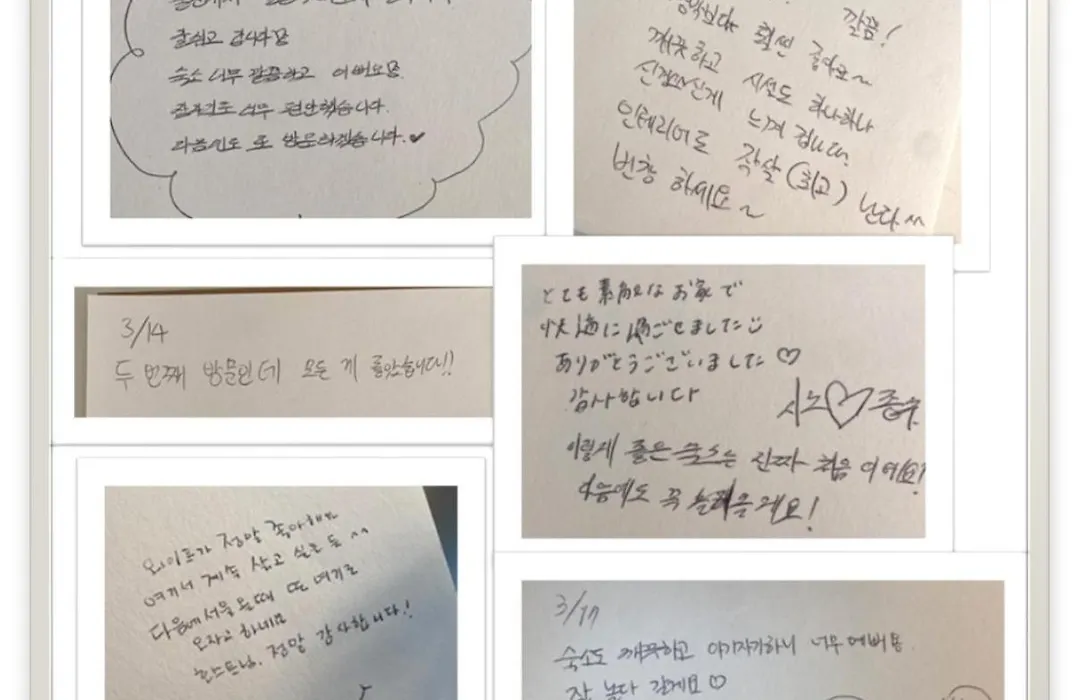 잘쉬고 갑니다용
숙소 너무 깔끔하고 이뻐요용
잠자리도 너무 편안했습니다.
다음에도 또 방문하겠습니다.♥
깔끔!
훨씬 좋아요~
깨끗하고 시설도 하나하나
느껴 집니다.
인테리어로 작살(최고) 난다^^
번창 하세요~
3/14
두 번째 방문인데 모든 게 좋았습니다!!
とても素敵なお家で
快適に過ごせました☺
ありがとうございました♡
감사합니다
시노♡종수
이렇게 좋은 숙소는 진짜 처음이에요!
다음에도 꼭 놀러올게요!
와이프가 정말 좋아해요
여기서 계속 살고 싶은 듯^^
다음에 서울 올때 또 여기로
오자고 하네요
호스트님. 정말 감사합니다!
3/17
숙소도 깨끗하고 아기자기하니 너무 예뻐용
잘 놀다 갈게요♡